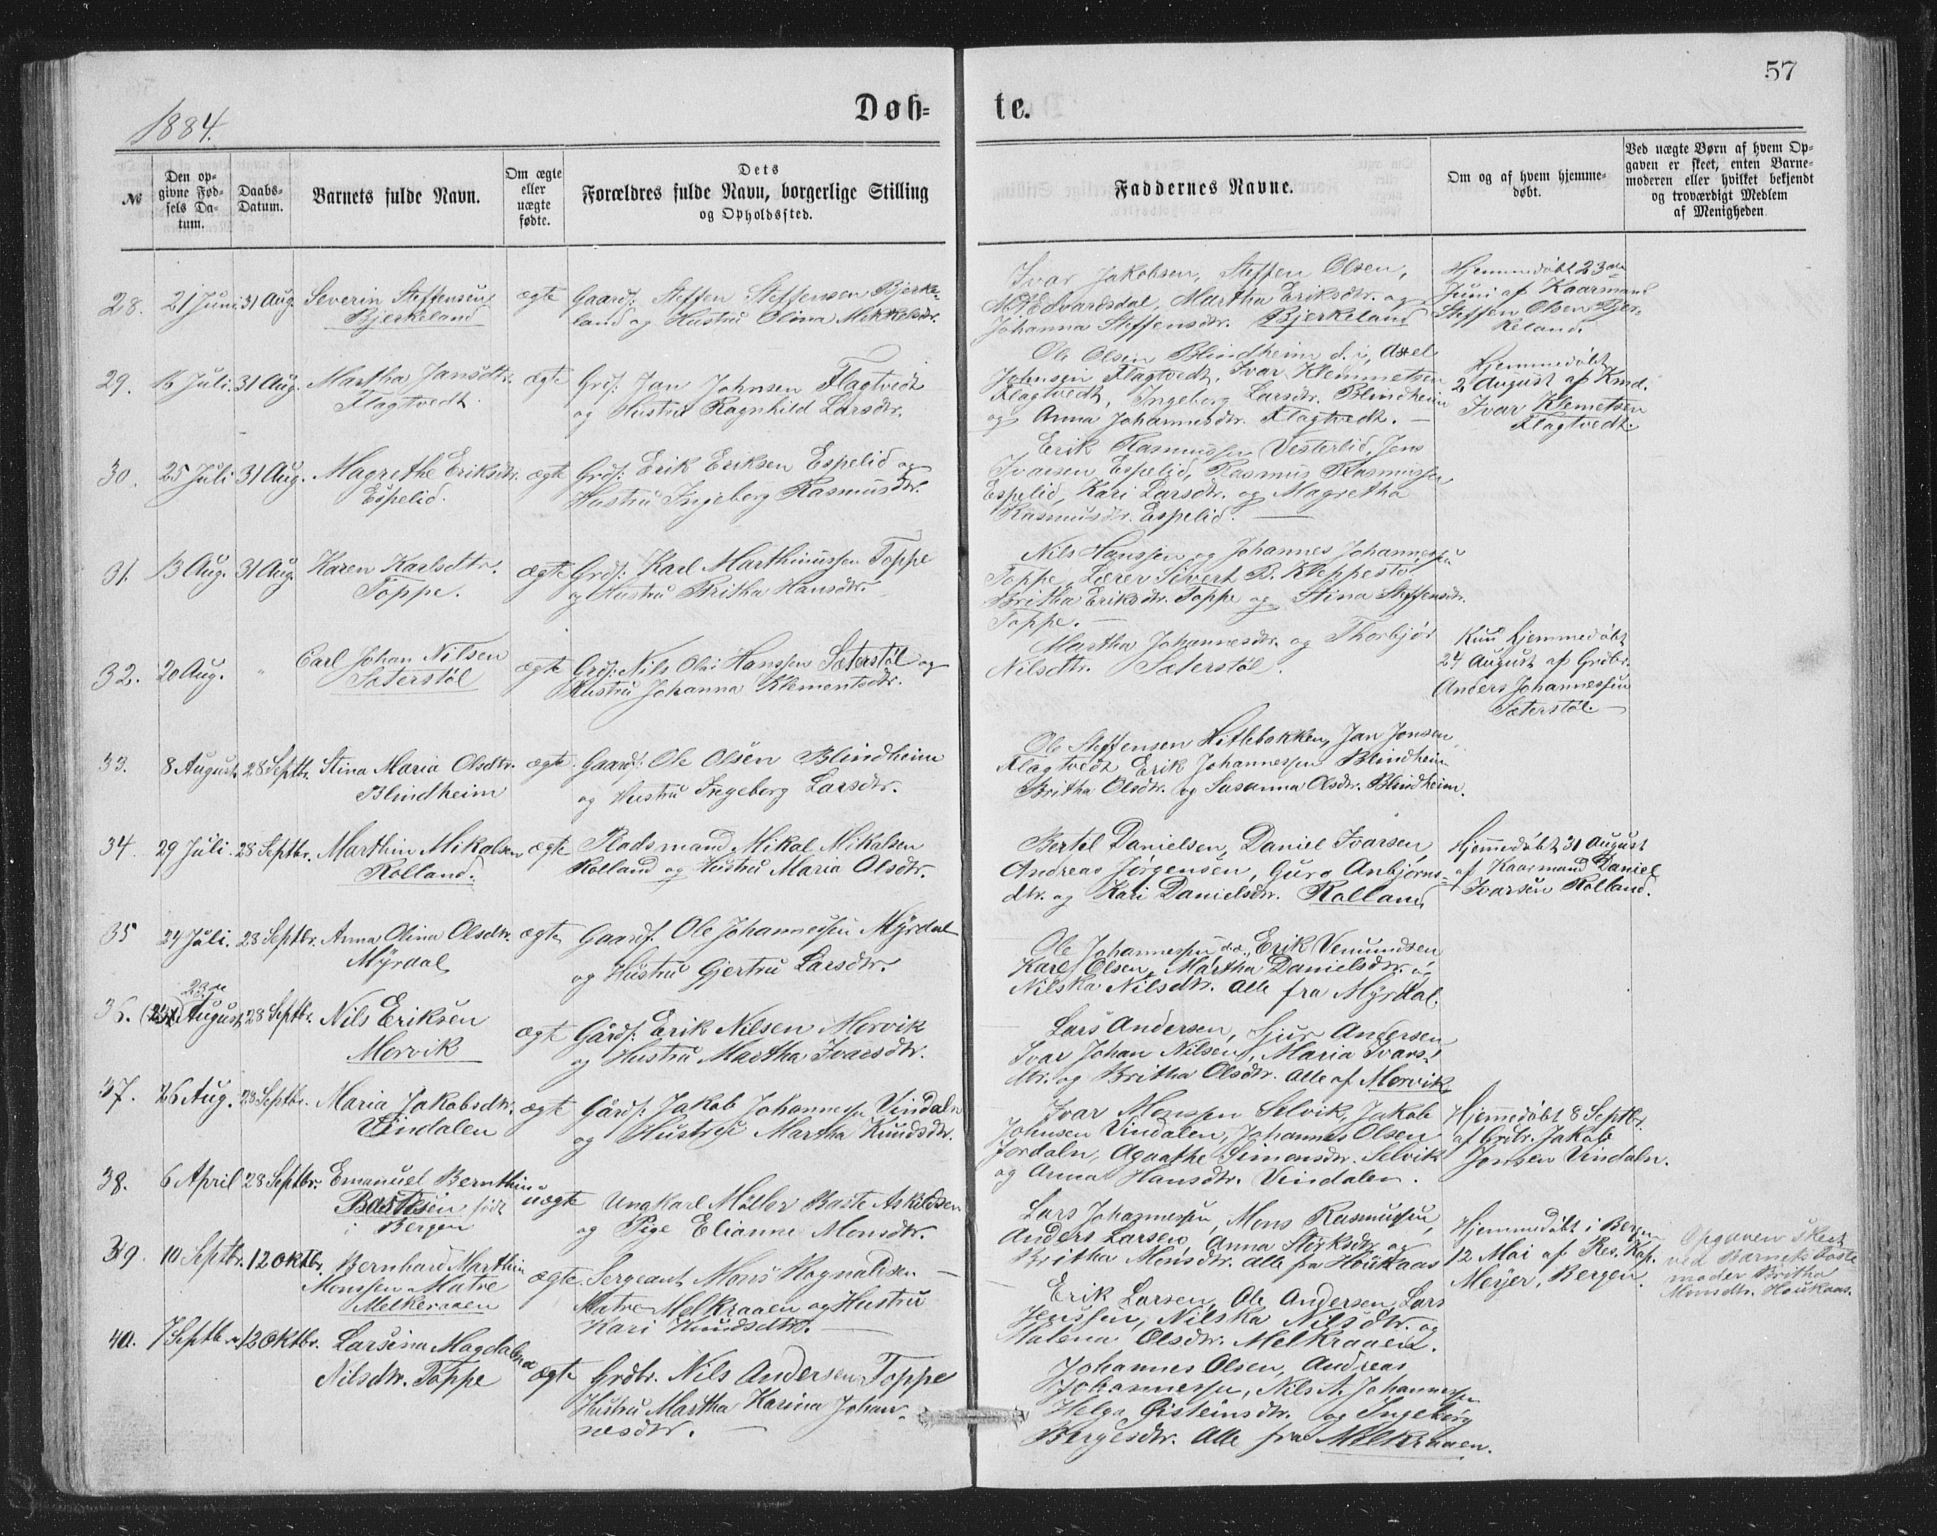 57
1884.
Døb-
te.
№
Den op-
givne Fød-
sels Da-
tum.
Daabs-
Datum.
Barnets fulde Navn.
Om ægte
eller
uægte
fødte.
Dets
Forældres fulde Navn, borgerlige Stilling
og Opholdssted.
Faddernes Navne.
Om og af hvem hjemme-
døbt.
Ved uægte Børn af hvem Op-
gaven er skeet, enten Barne-
moderen eller hvilket bekjendt
og troværdigt Medlem
af Menigheden
28. 21 Juni 31 Aug. Severin Steffensen
Bjerkeland
ægte
Gaardf. Steffen Steffensen Bjerke-
land og Hustru Olina Mikkelsdtr.
Ivar Jakobsen, Steffen Olsen,
Edvardsdal, Martha Eriksdtr. og
Johanna Steffensdtr. Bjerkeland
Hjemmedøbt 23de
Juni af Kaarmand
Steffen Olsen Bjer-
keland.
29. 16 Juli 31 Aug. Martha Jansdtr.
Flagtvedt.
ægte
Grdf. Jan Johnsen Flagtvedt
og Hustru Ragnhild Larsdtr.
Ole Olsen Blindheim d. i, Axel
Johnsen Flagtvedt, Ivar Klemmetsen
Flagtvedt, Ingeborg Larsdtr. Blindheim
og Anna Johannesdtr. Flagtvedt. —
Hjemmedøbt
2 August af Kmd.
Ivar Klemetsen
Flagtvedt.
30. 25 Juli 31 Aug. Magrethe Eriksdtr.
Espelid.
ægte
Grdf. Erik Eriksen Espelid og
Hustru Ingeborg Rasmusdtr.
Erik Rasmussen Vesterlid, Jens
Ivarsen Espelid, Rasmus Rasmussen
Espelid, Kari Larsdtr. og Magretha
Rasmusdtr. Espelid. —
31. 13 Aug. 31 Aug. Karen Karlsdtr.
Toppe.
ægte
Grdf. Karl Marthinussen Toppe
og Hustru Britha Hansdtr.
Nils Hanssen og Johannes Johannessen
Toppe, Lærer Sivert B. Kleppestøl
Britha Eriksdtr. Toppe og Stina Steffensdtr.
Toppe. —
32. 20 Aug. " Carl Johan Nilsen
Sæterstøl
ægte
Grdf. Nils Olai Hanssen Sæterstøl og
Hustru Johanna Klementsdtr.
Martha Johannesdtr. og Thorbjør
Nilsdtr. Sæterstøl
Kun hjemmedøbt
24 August af Grdbr.
Anders Johannessen
Sæterstøl. —
33. 8 August 28 Septbr. Stina Maria Olsdtr.
Blindheim
ægte.
Gaardf. Ole Olsen Blindheim
og Hustru Ingeborg Larsdtr.
Ole Steffensen Hitlebakken, Jan Jonsen
Flagtvedt Erik Johannessen Blindheim
Britha Olsdtr. og Susanna Olsdtr. Blindheim.
34. 29 Juli. 28 Septbr. Marthin Mikalsen
Rolland.
ægte
Pladsmand Mikal Mikalsen
Rolland og Hustru Maria Olsdtr.
Bertel Danielsen, Daniel Ivarsen,
Andreas Jørgensen, Guro Anbjørns-
dtr. og Kari Danielsdtr. Rolland
Hjemmedøbt 31 August
af Kaarmand Daniel
Ivarsen Rolland.
35 24 Juli. 28 Septbr. Anna Olina Olsdtr.
Myrdal
ægte
Gaardf. Ole Johannessen Myrdal
og Hustru Gjertru Larsdtr.
Ole Johannessen d.æ, Erik Vemundsen
Karl Olsen, Martha Danielsdtr. og
Nilska Nilsdtr. alle fra Myrdal.
36. 23de August 28 Septbr. Nils Eriksen
Morvik
ægte
Gårdf. Erik Nilsen Morvik
og Hustru Martha Ivarsdtr.
Lars Andersen, Sjur Andersen
Ivar Johan Nilsen, Maria Ivars-
dtr. og Britha Olsdtr. alle af Morvik
37. 26 Aug. 28 Septbr. Maria Jakobsdtr.
Vindalen
ægte
Gårdf. Jakob Johannessen Vindalen
og Hustru Martha Knudsdtr.
Ivar Monssen Selvik, Jakob
Johnsen Vindalen, Johannes Olsen
Jordaln, Agaathe Simonsdtr. Selvik
og Anna Hansdtr. Vindalen.
Hjemmedøbt 8 Septbr.
af Grdbr. Jakob
Jonsen Vindaln.
38. 6 April 28 Septbr. Emanuel Bernthin
Bastesen, født
i Bergen
uægte
Ungkarl Møller Baste Askildsen
og Pige Elianne Monsdtr.
Lars Johannessen, Mons Rasmussen,
Anders Larsen, Anna Størksdtr. og
Britha Monsdtr. alle fra Houkaas
Hjemmedøbt i Bergen
12 Mai af Res. Kap.
Meyer, Bergen.
Opgaven skeet
ved Barnets Faste
moder Britha
Monsdtr. Houkaas.
39. 10 Septbr. 12 Oktbr. Bernhard Marthin
Monssen Matre
Melkeraaen
ægte
Sergeant Mons Hagnaldsen —
Matre Melkraaen og Hustru
Kari Knudsdtr. —
Erik Larsen, Ole Andersen, Lars
Jenssen, Nilska Nilsdtr. og
Malena Olsdtr. Melkraaen.
40. 7 Septbr. 12 Oktbr. Larsina Magdalena
Nilsdtr. Toppe
ægte
Grdbr. Nils Andersen Toppe
Hustru Martha Karina Johan-
nesdtr. —
Johannes Olsen, Andreas
Johannessen, Nils A. Johannessen
Helga Øisteinsdtr. og Ingeborg
Børgesdtr. alle fra Melkraaen.